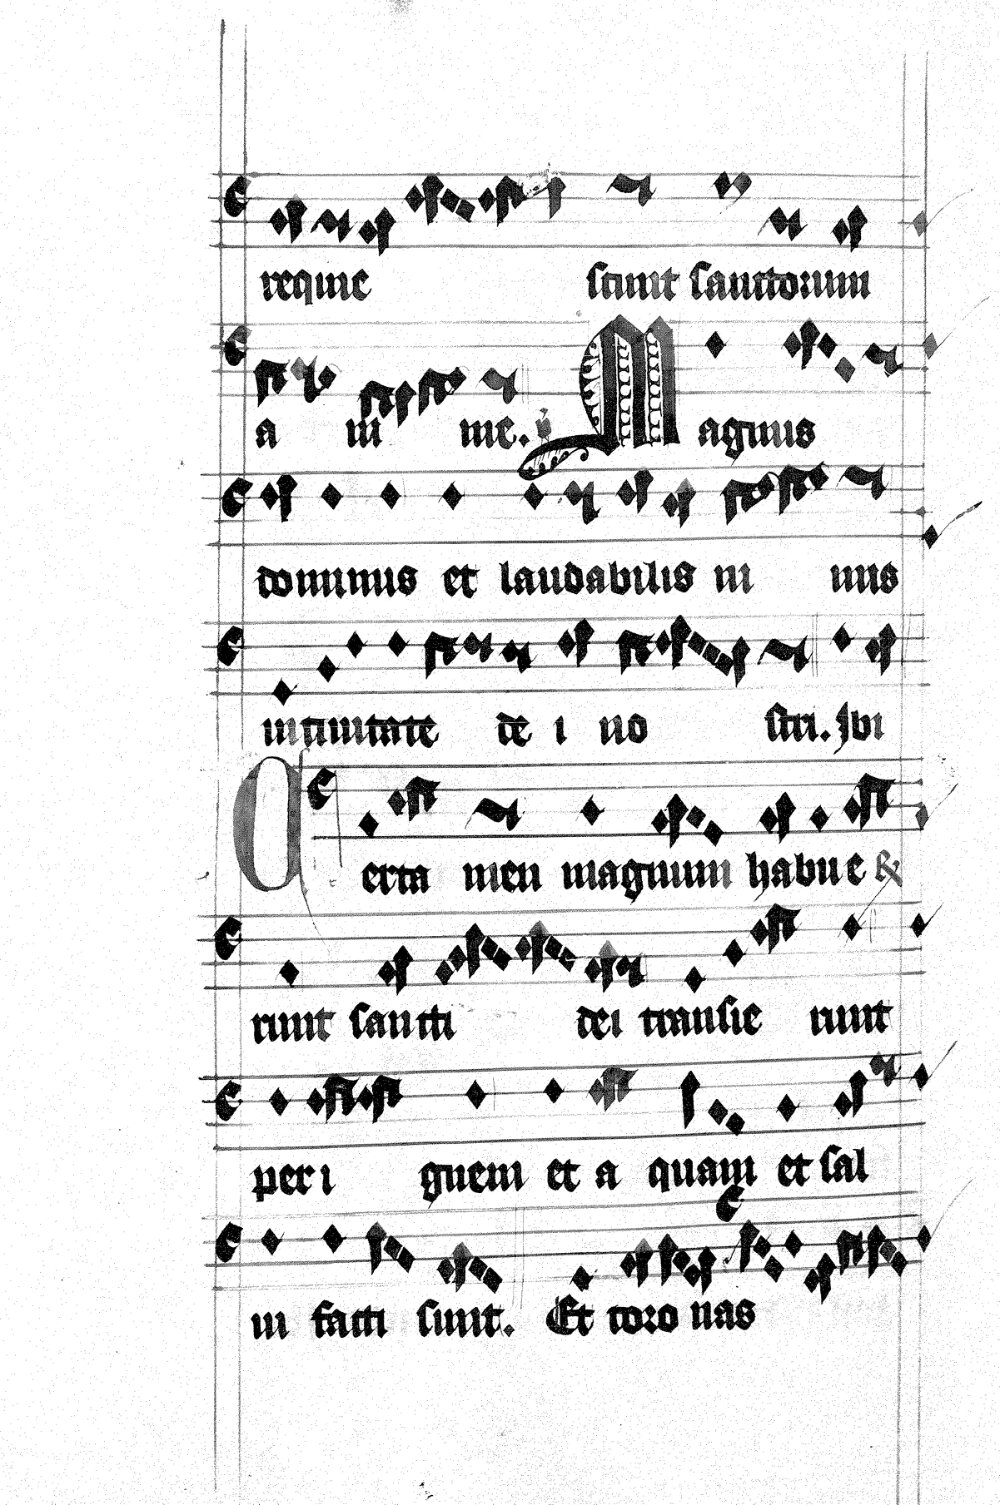 requie scunt sanctorum
a ni me. Magnus
dominus et laudabilis ni mis
in civitate de i no stri. Ibi
Certa men magnum habue &
runt sancti dei transie runt
per i gnem et a quam et sal
vi facti sunt. Et coro nas